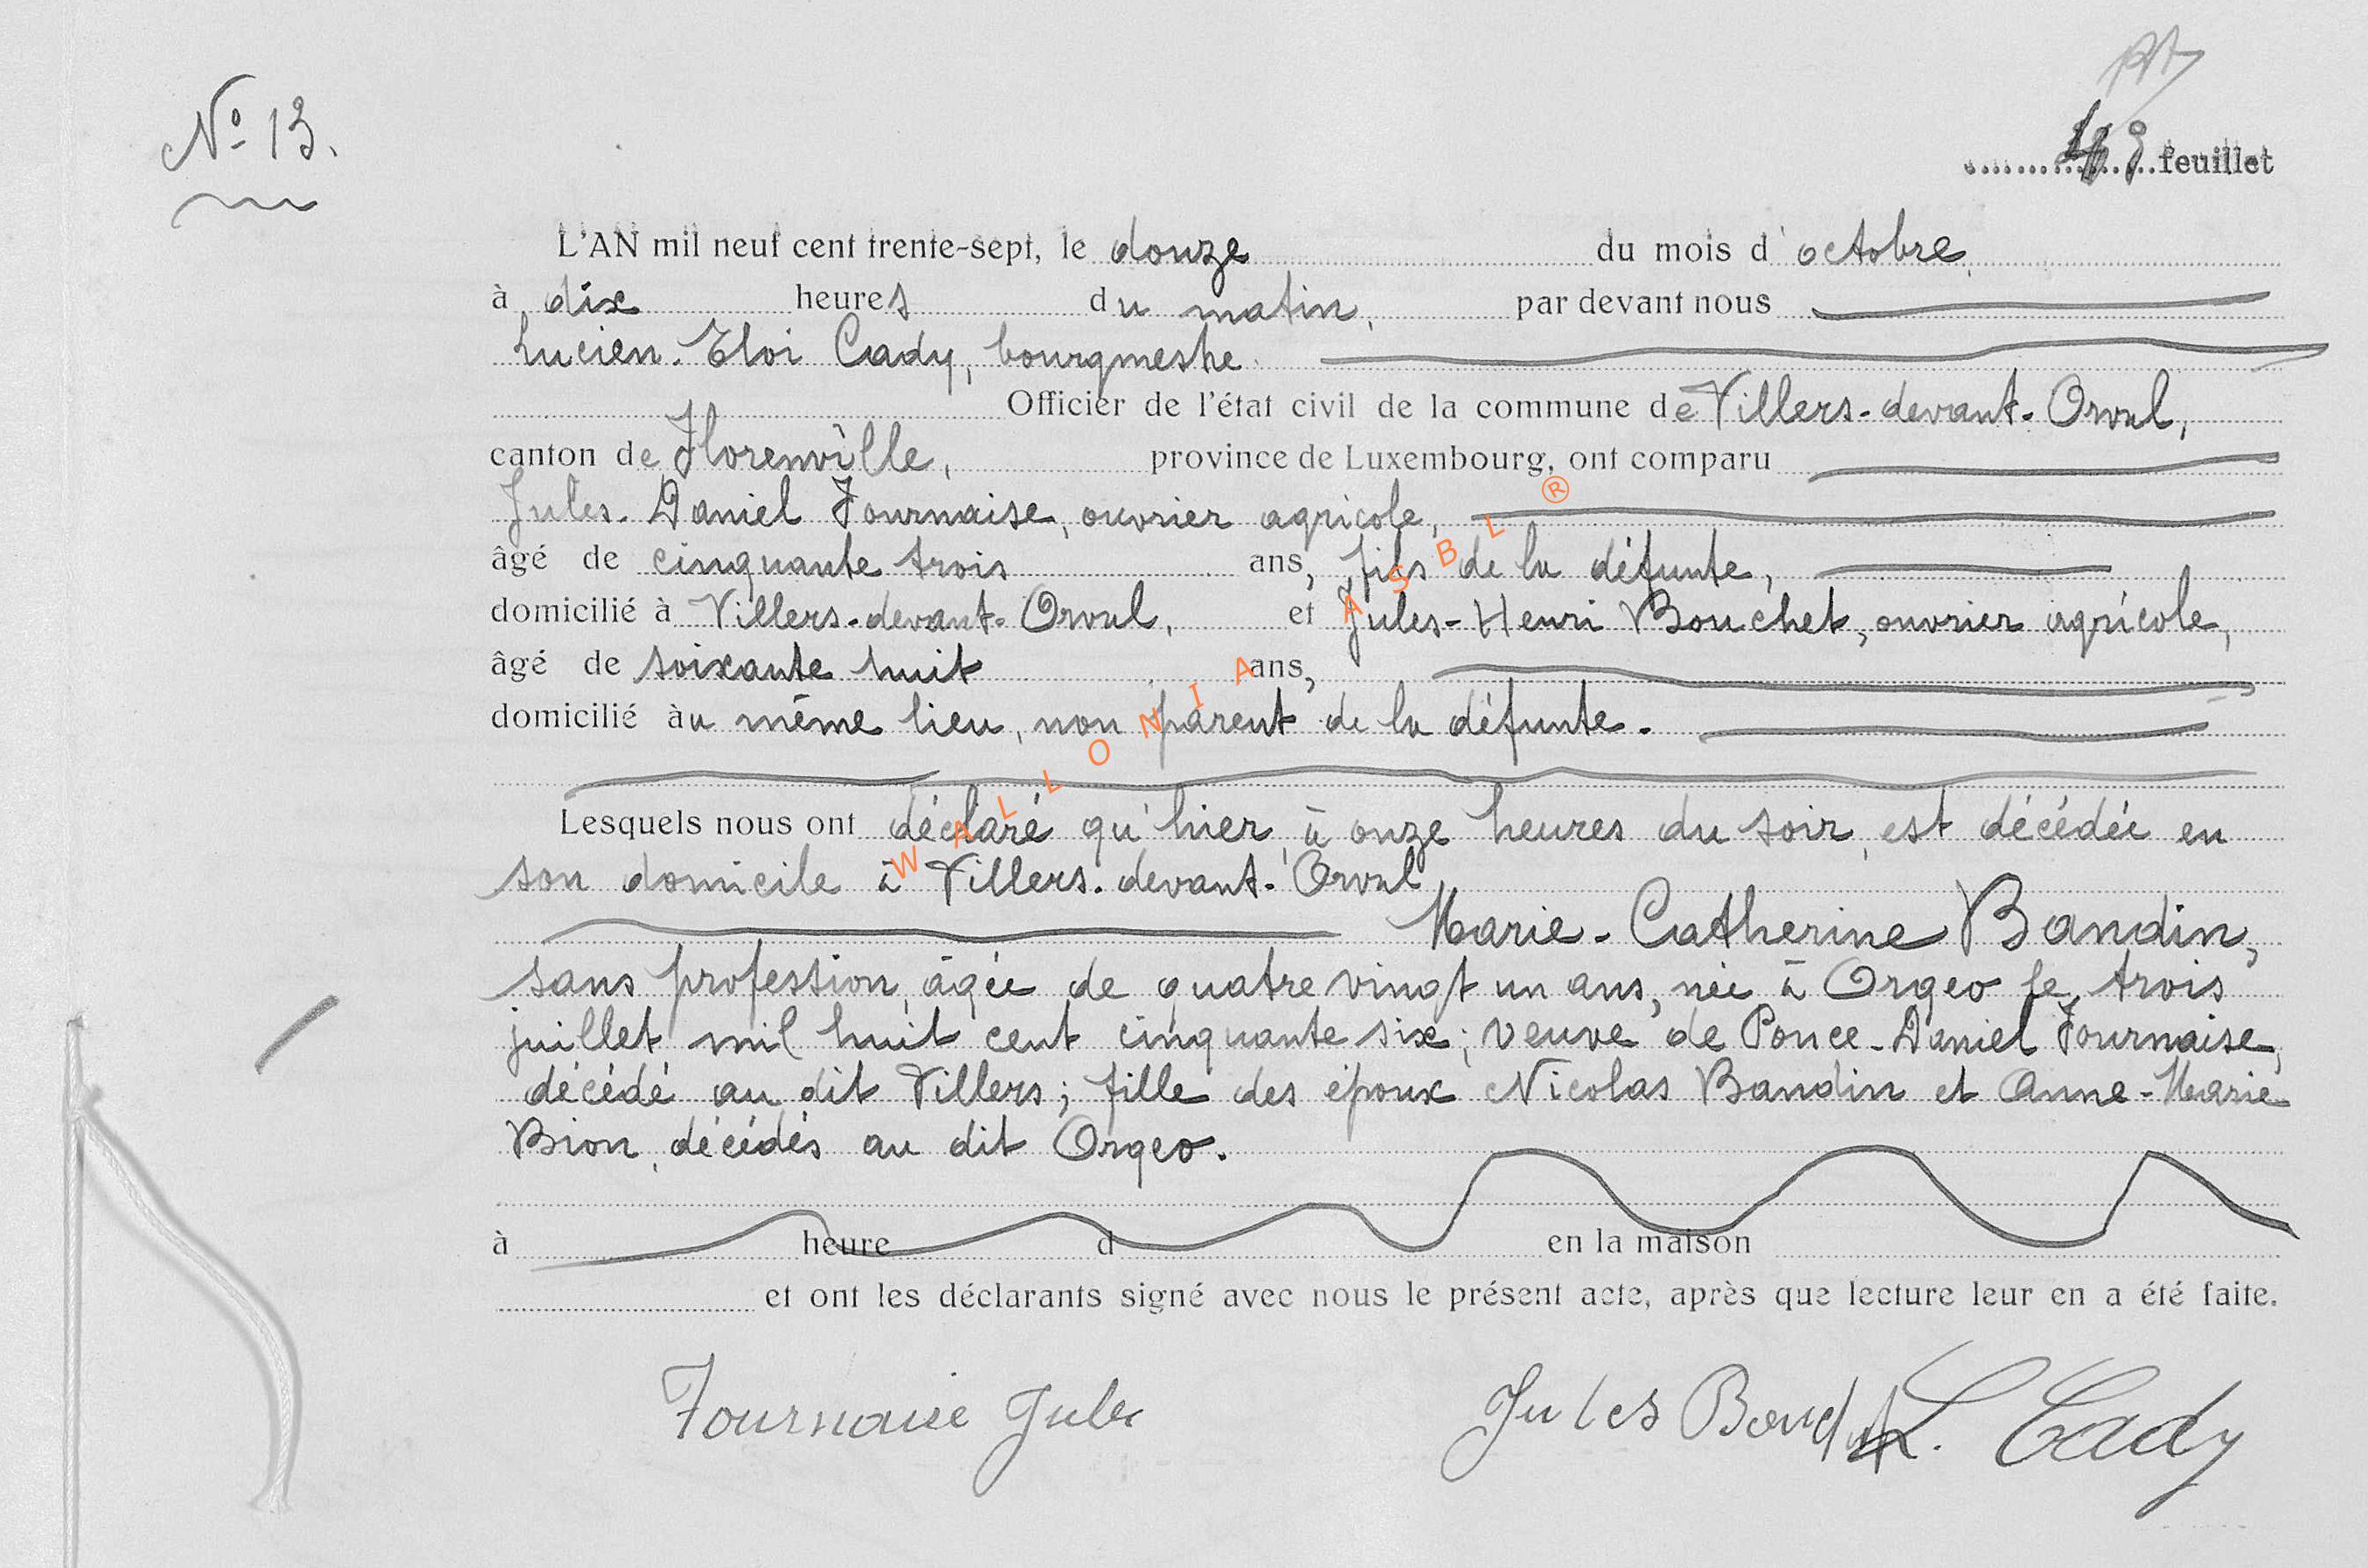 Nº 13.
feuillet
L'AN mil neuf cent trente-sept, le douze du mois d'octobre,
à dix heures du matin, par devant nous
Lucien-Eloi Cady, bourgmestre
Officier de l'état civil de la commune de Villers-devant-Orval,
canton de Florenville, province de Luxembourg, ont comparu
Jules-Daniel Fournaise, ouvrier agricole,
âgé de cinquante trois ans, fils de la défunte,
domicilié à Villers-devant-Orval, et Jules-Henri Bouchet, ouvrier agricole,
âgé de soixante huit ans,
domicilié au même lieu, non parent de la défunte.
Lesquels nous ont déclaré qu'hier, à onze heures du soir, est décédée en
son domicile à Villers-devant-Orval
Marie-Catherine Baudin,
sans profession, âgée de quatre vingt un ans, née à Orgeo le trois
juillet mil huit cent cinquante six; veuve de Ponce-Daniel Fournaise,
décédé au dit Villers; fille des époux Nicolas Baudin et Anne-Marie
Bion, décédés au dit Orgeo.
à heure d en la maison
et ont les déclarants signé avec nous le présent acte, après que lecture leur en a été faite.
Fournaise Jules Jules Bouchet L. Cady
WALLONIA ASBL ®